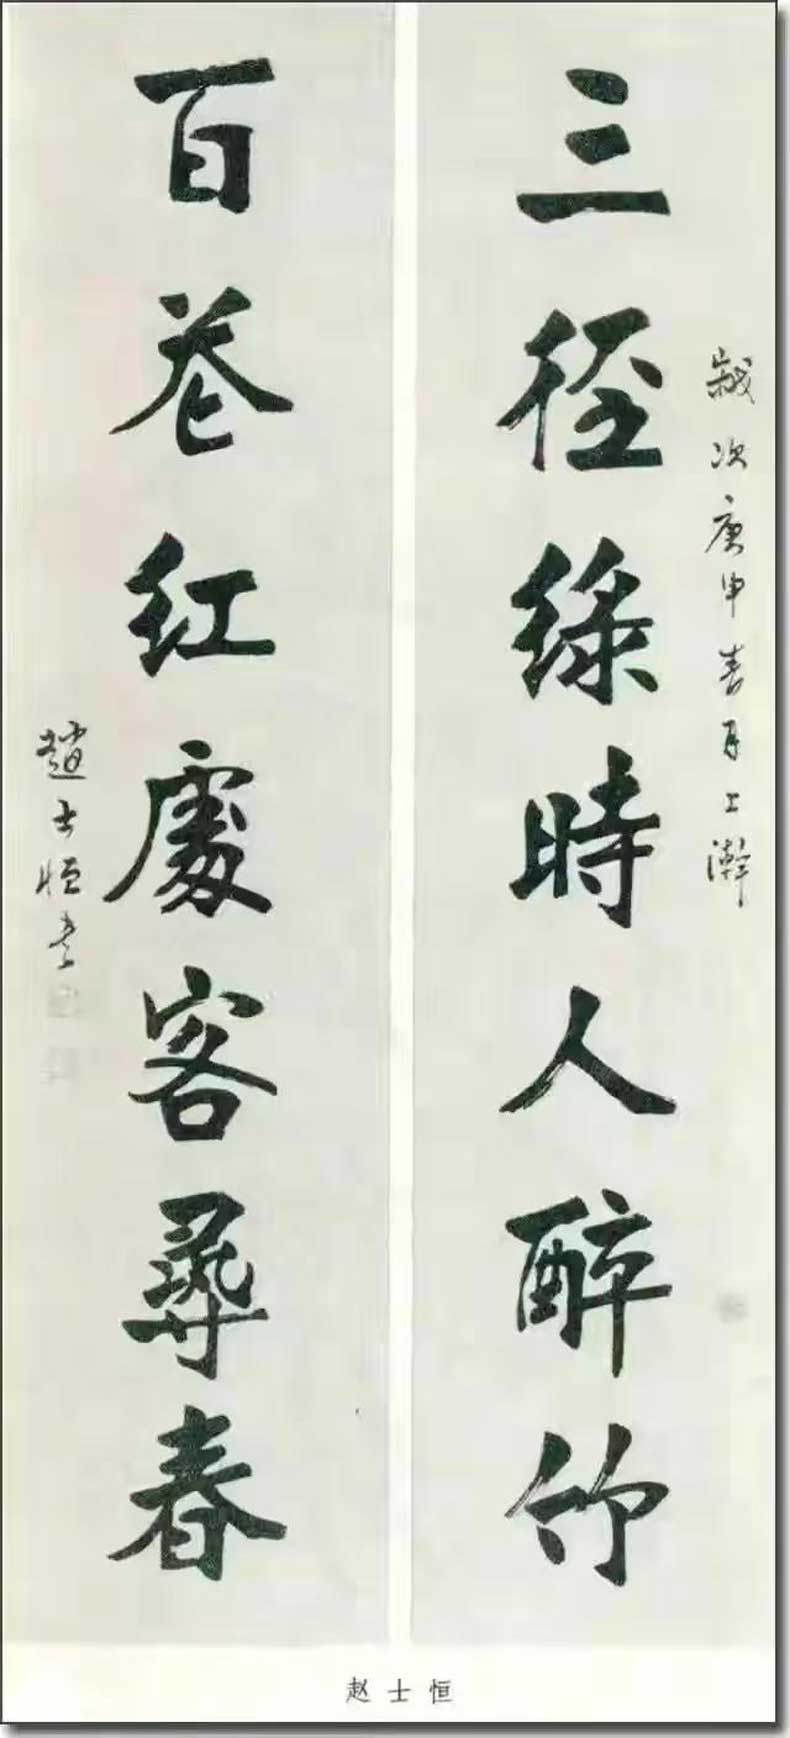 歲次庚申春月上澣
三径綠時人醉竹
百卷紅處客尋春
趙士恒書
赵士恒